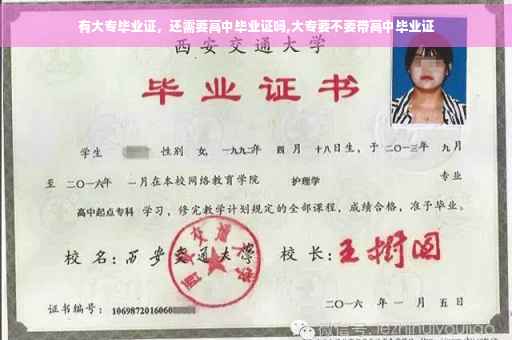 有大专毕业证，还需要高中毕业证吗,大专要不要带高中毕业证
西安交通大学
毕业证书
学生 性别 女，一九九二年 四月 十八日生，于二〇一三年 九月
至二〇一六年 一月在本校网络教育学院 护理学 专业
高中起点专科 学习，修完教学计划规定的全部课程，成绩合格，准予毕业。
校名：西安交通大学 校长：王树国
西安交通大学
证书编号：1069872016060
二〇一六年一月五日
微信号: jezhinuivoujiao